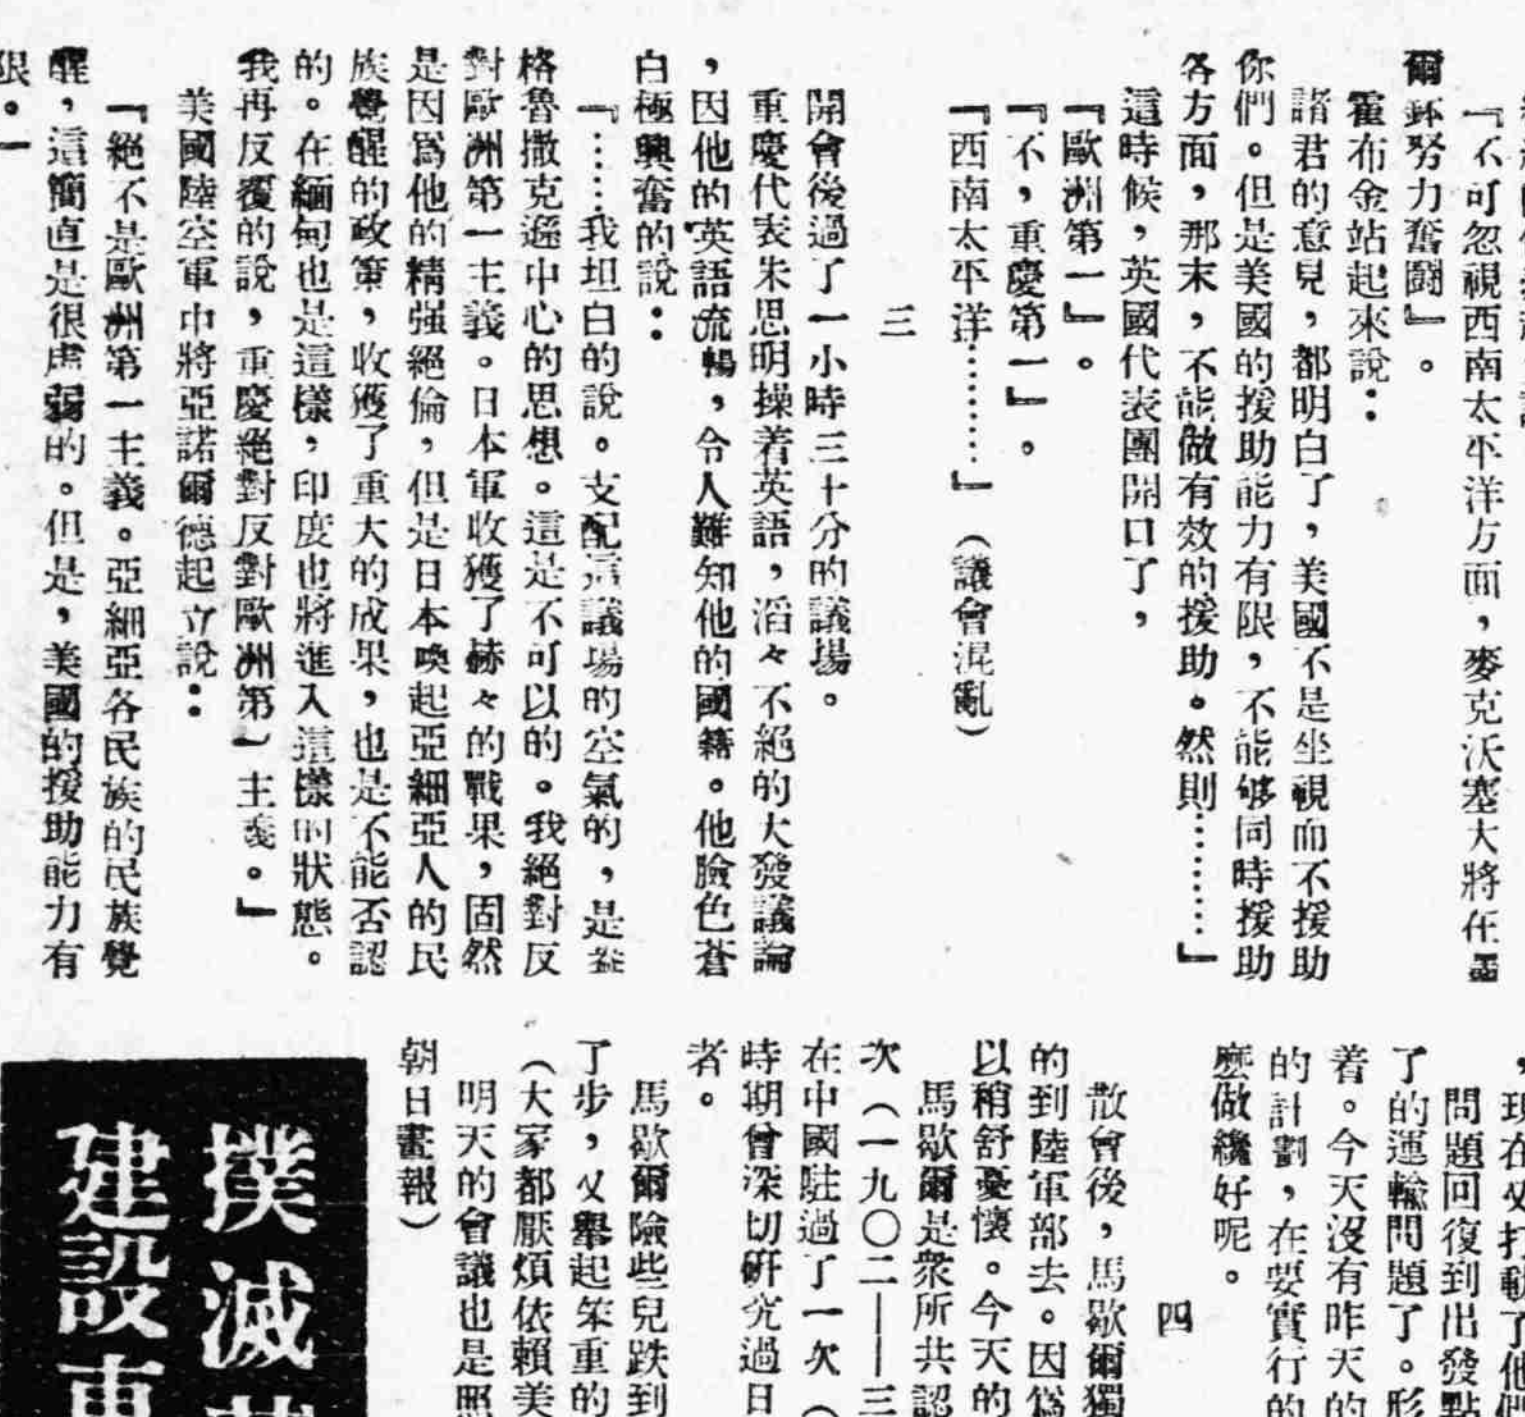 『不可忽視西南太平洋方面，麥克沃塞大將在墨
爾鉢努力奮鬪』。
霍布金站起來說：
諸君的意見，都明白了，美國不是坐視而不援助
你們。但是美國的援助能力有限，不能够同時援助
各方面，那末，不能做有效的援助。然則………』
這時候，英國代表團開口了，
『歐洲第一』。
『不，重慶第一』。
『西南太平洋………』（議會混亂）
三
開會後過了一小時三十分的議場。
重慶代表朱思明操着英語，滔々不絕的大發議論
，因他的英語流暢，令人難知他的國籍。他臉色蒼
白極興奮的說：
『……我坦白的說。支配這議場的空氣的，是盎
格魯撒克遜中心的思想。這是不可以的。我絕對反
對歐洲第一主義。日本軍收獲了赫々的戰果，固然
是因爲他的精强絕倫，但是日本喚起亞細亞人的民
族覺醒的政策，收獲了重大的成果，也是不能否認
的。在緬甸也是這樣，印度也將進入這樣的狀態。
我再反覆的說，重慶絕對反對歐洲第一主義。』
美國陸空軍中將亞諾爾德起立說：
『絕不是歐洲第一主義。亞細亞各民族的民族覺
醒，這簡直是很虛弱的。但是，美國的援助能力有
限。』
，現在又打動了他們
問題回復到出發點
了的運輸問題了。形
着。今天沒有昨天的
的計劃，在要實行的
麽做纔好呢。
四
散會後，馬歇爾獨
的到陸軍部去。因爲
以稍舒憂懷。今天的
馬歇爾是衆所共認
次（一九〇二——三
在中國駐過了一次（
時期曾深切硏究過日
者。
馬歇爾險些兒跌到
了步，又舉起笨重的
（大家都厭煩依賴美
明天的會議也是照
朝日畫報）
撲滅
建設東